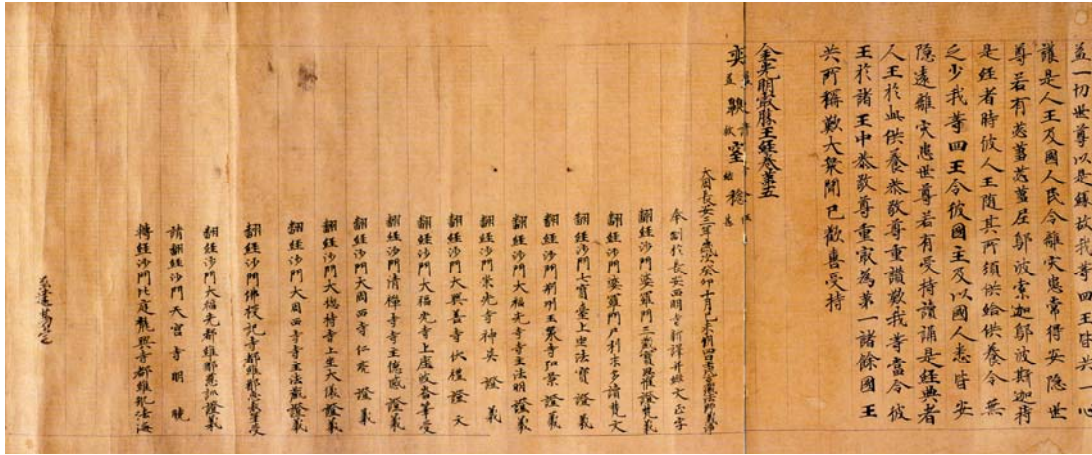 並一切世尊以是經故我等四王皆共一心
護是人王及國人民令離灾患常得安隱世
尊若有苾蒭苾蒭尼鄔波索迦鄔波斯迦持
是經者時彼人王随其所須供給供養令無
乏少我等四王令彼國主及以國人悉皆安
隱遠離灾患世尊若有受持讀誦是經典者
人王於此供養恭敬尊重讚歎我等當令彼
王於諸王中恭敬尊重最為第一諸餘國王
共所稱歎大衆聞已歡喜受持
金光明最勝王經卷第五
大周長安三年歲次癸卯十月己未朔四日壬戌三藏法師義淨
奉制於長安西明寺新譯并綴文正字
翻經沙門婆羅門三藏寶思惟證梵義
翻經沙門婆羅門尸利末多讀梵文
翻經沙門七寶臺上坐法寶證義
翻經沙門荆州玉泉寺弘景證義
翻經沙門大福先寺寺主法明證義
翻經沙門崇先寺神英證義
翻經沙門大興善寺伏禮證文
翻經沙門大福先寺上座波崙筆受
翻經沙門清禪寺寺主德感證義
翻經沙門大周西寺仁亮證義
翻經沙門大惣持寺上坐大儀證義
翻經沙門大周西寺寺主法藏證義
翻經沙門佛授記寺都維那惠表筆受
翻經沙門大福先寺都維那慈訓證義
請翻經沙門天宮寺明曉
轉經沙門北庭龍興寺都維那法海